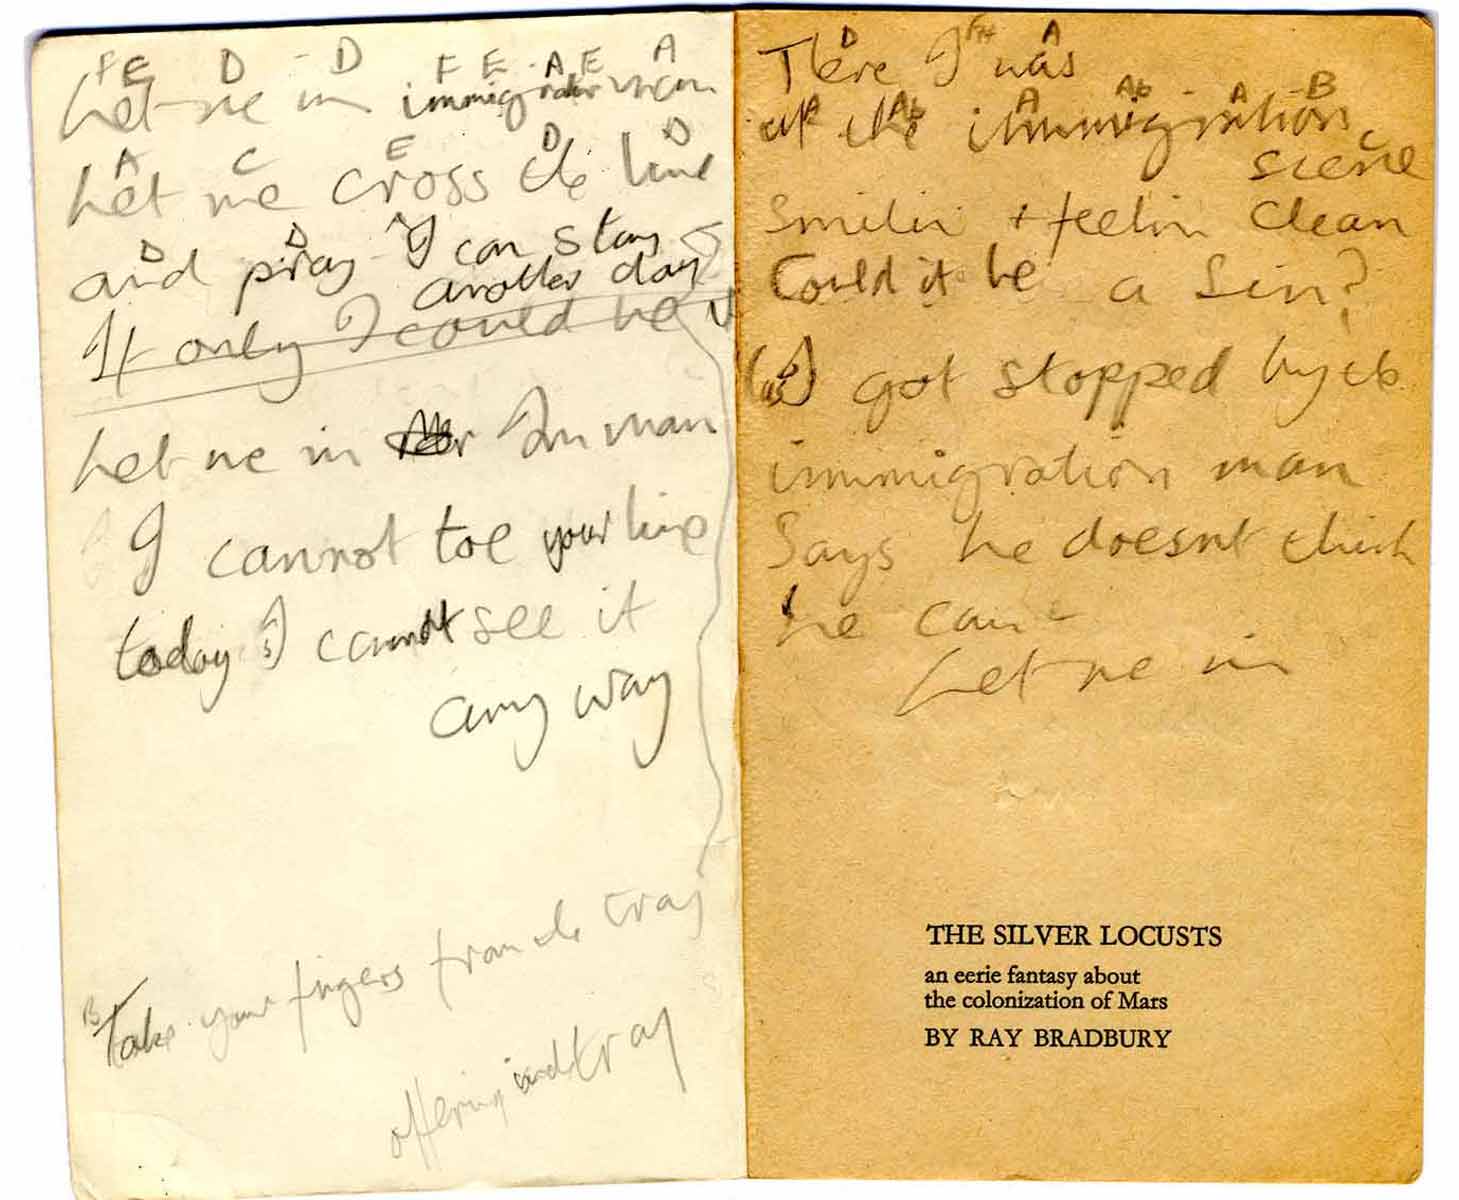 F E D - D F E - A E A
Let me in immigration man
A C E D D
Let me cross the line
D D
and pray I can stay
another day
If only I could be
Let me in Im man
I cannot toe your line
today I cannot see it
any way
B
Take your fingers from the tray
offering tray
D F# A
There I was
A Ab A Ab - A - B
at the immigration
scene
Smilin + feelin clean
Could it be a Sin?
I got stopped by the
immigration man
Says he doesnt think
he can
Let me in
THE SILVER LOCUSTS
an eerie fantasy about
the colonization of Mars
BY RAY BRADBURY